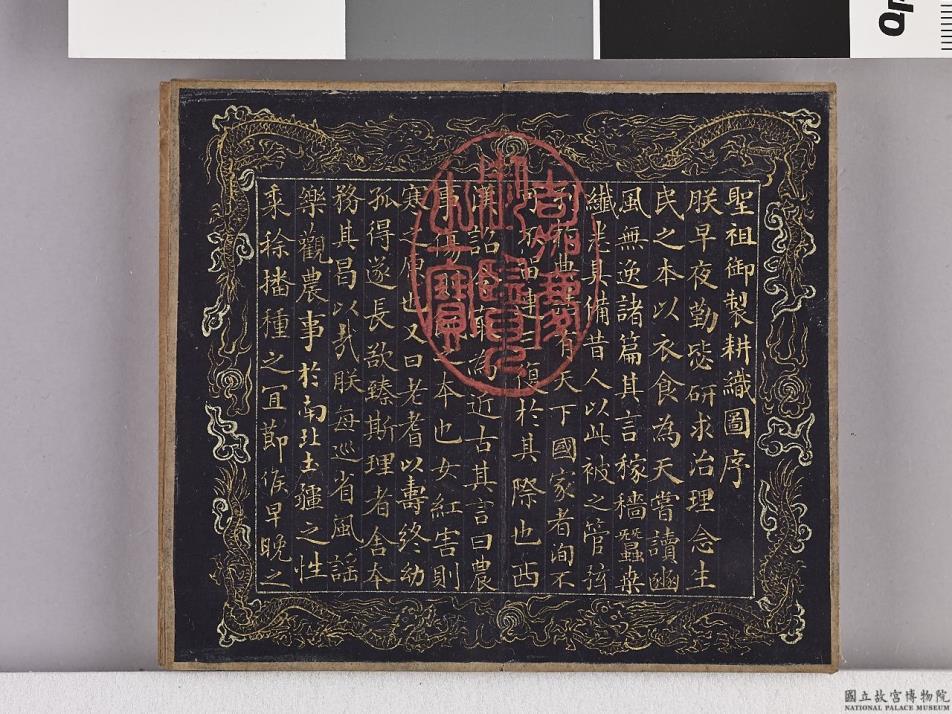 聖祖御製耕織圖序
朕早夜勤毖研求治理念生
民之本以衣食為天嘗讀豳
風無逸諸篇其言稼穡蠶桒
纖悉具備昔人以此被之管弦
列於典誥有天下國家者洵不
可不留連三復於其際也西
漢詔令最為近古其言曰農
事傷則飢之本也女紅害則
寒之原也又曰老耆以壽終幼
孤得遂長欲臻斯理者舍本
務其曷以哉朕每巡省風謡
樂觀農事於南北土疆之性
黍稌播種之宜節候早晚之
嘉慶御覽之寶
國立故宮博物院
NATIONAL PALACE MUSEUM